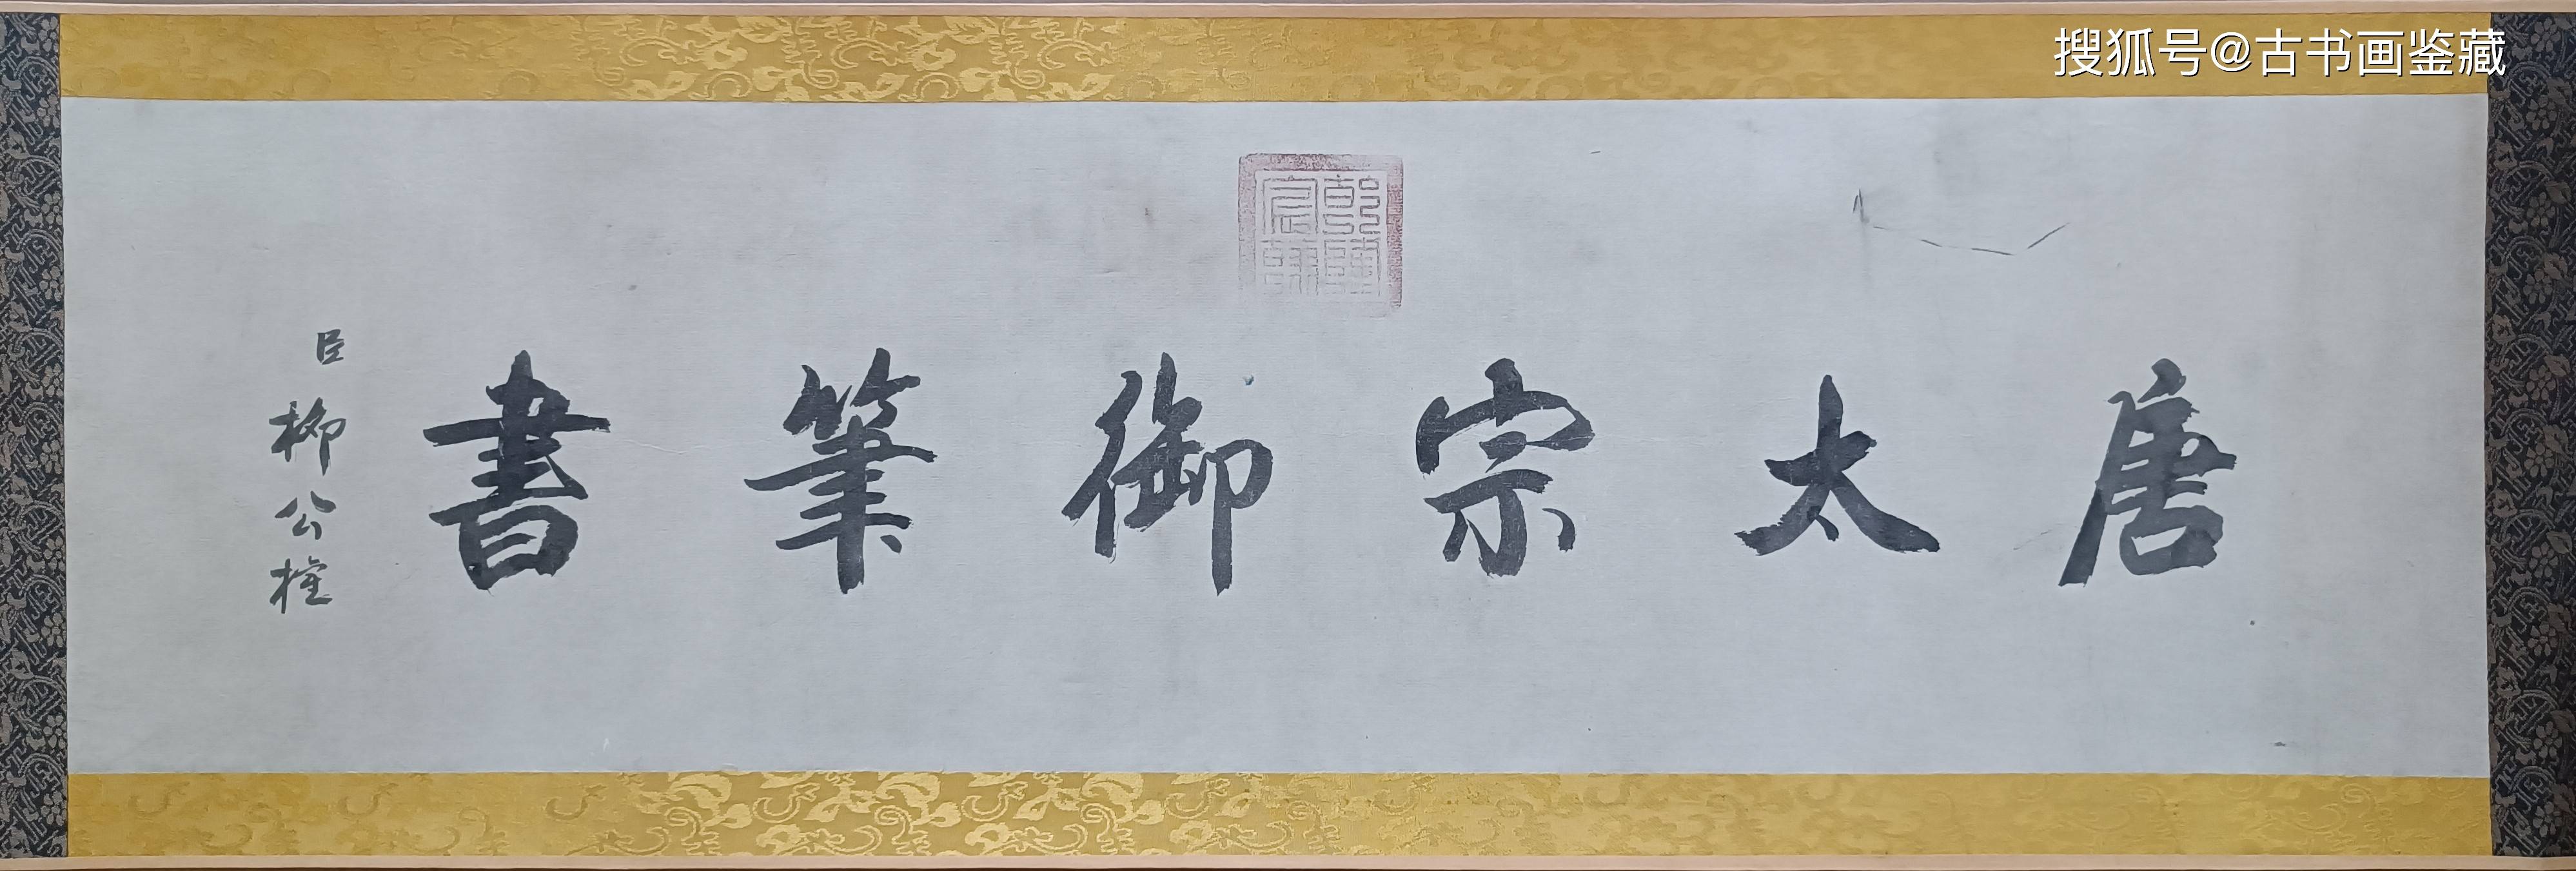 搜狐号@古书画鉴藏
唐太宗御筆書
臣柳公權
乾隆宸翰